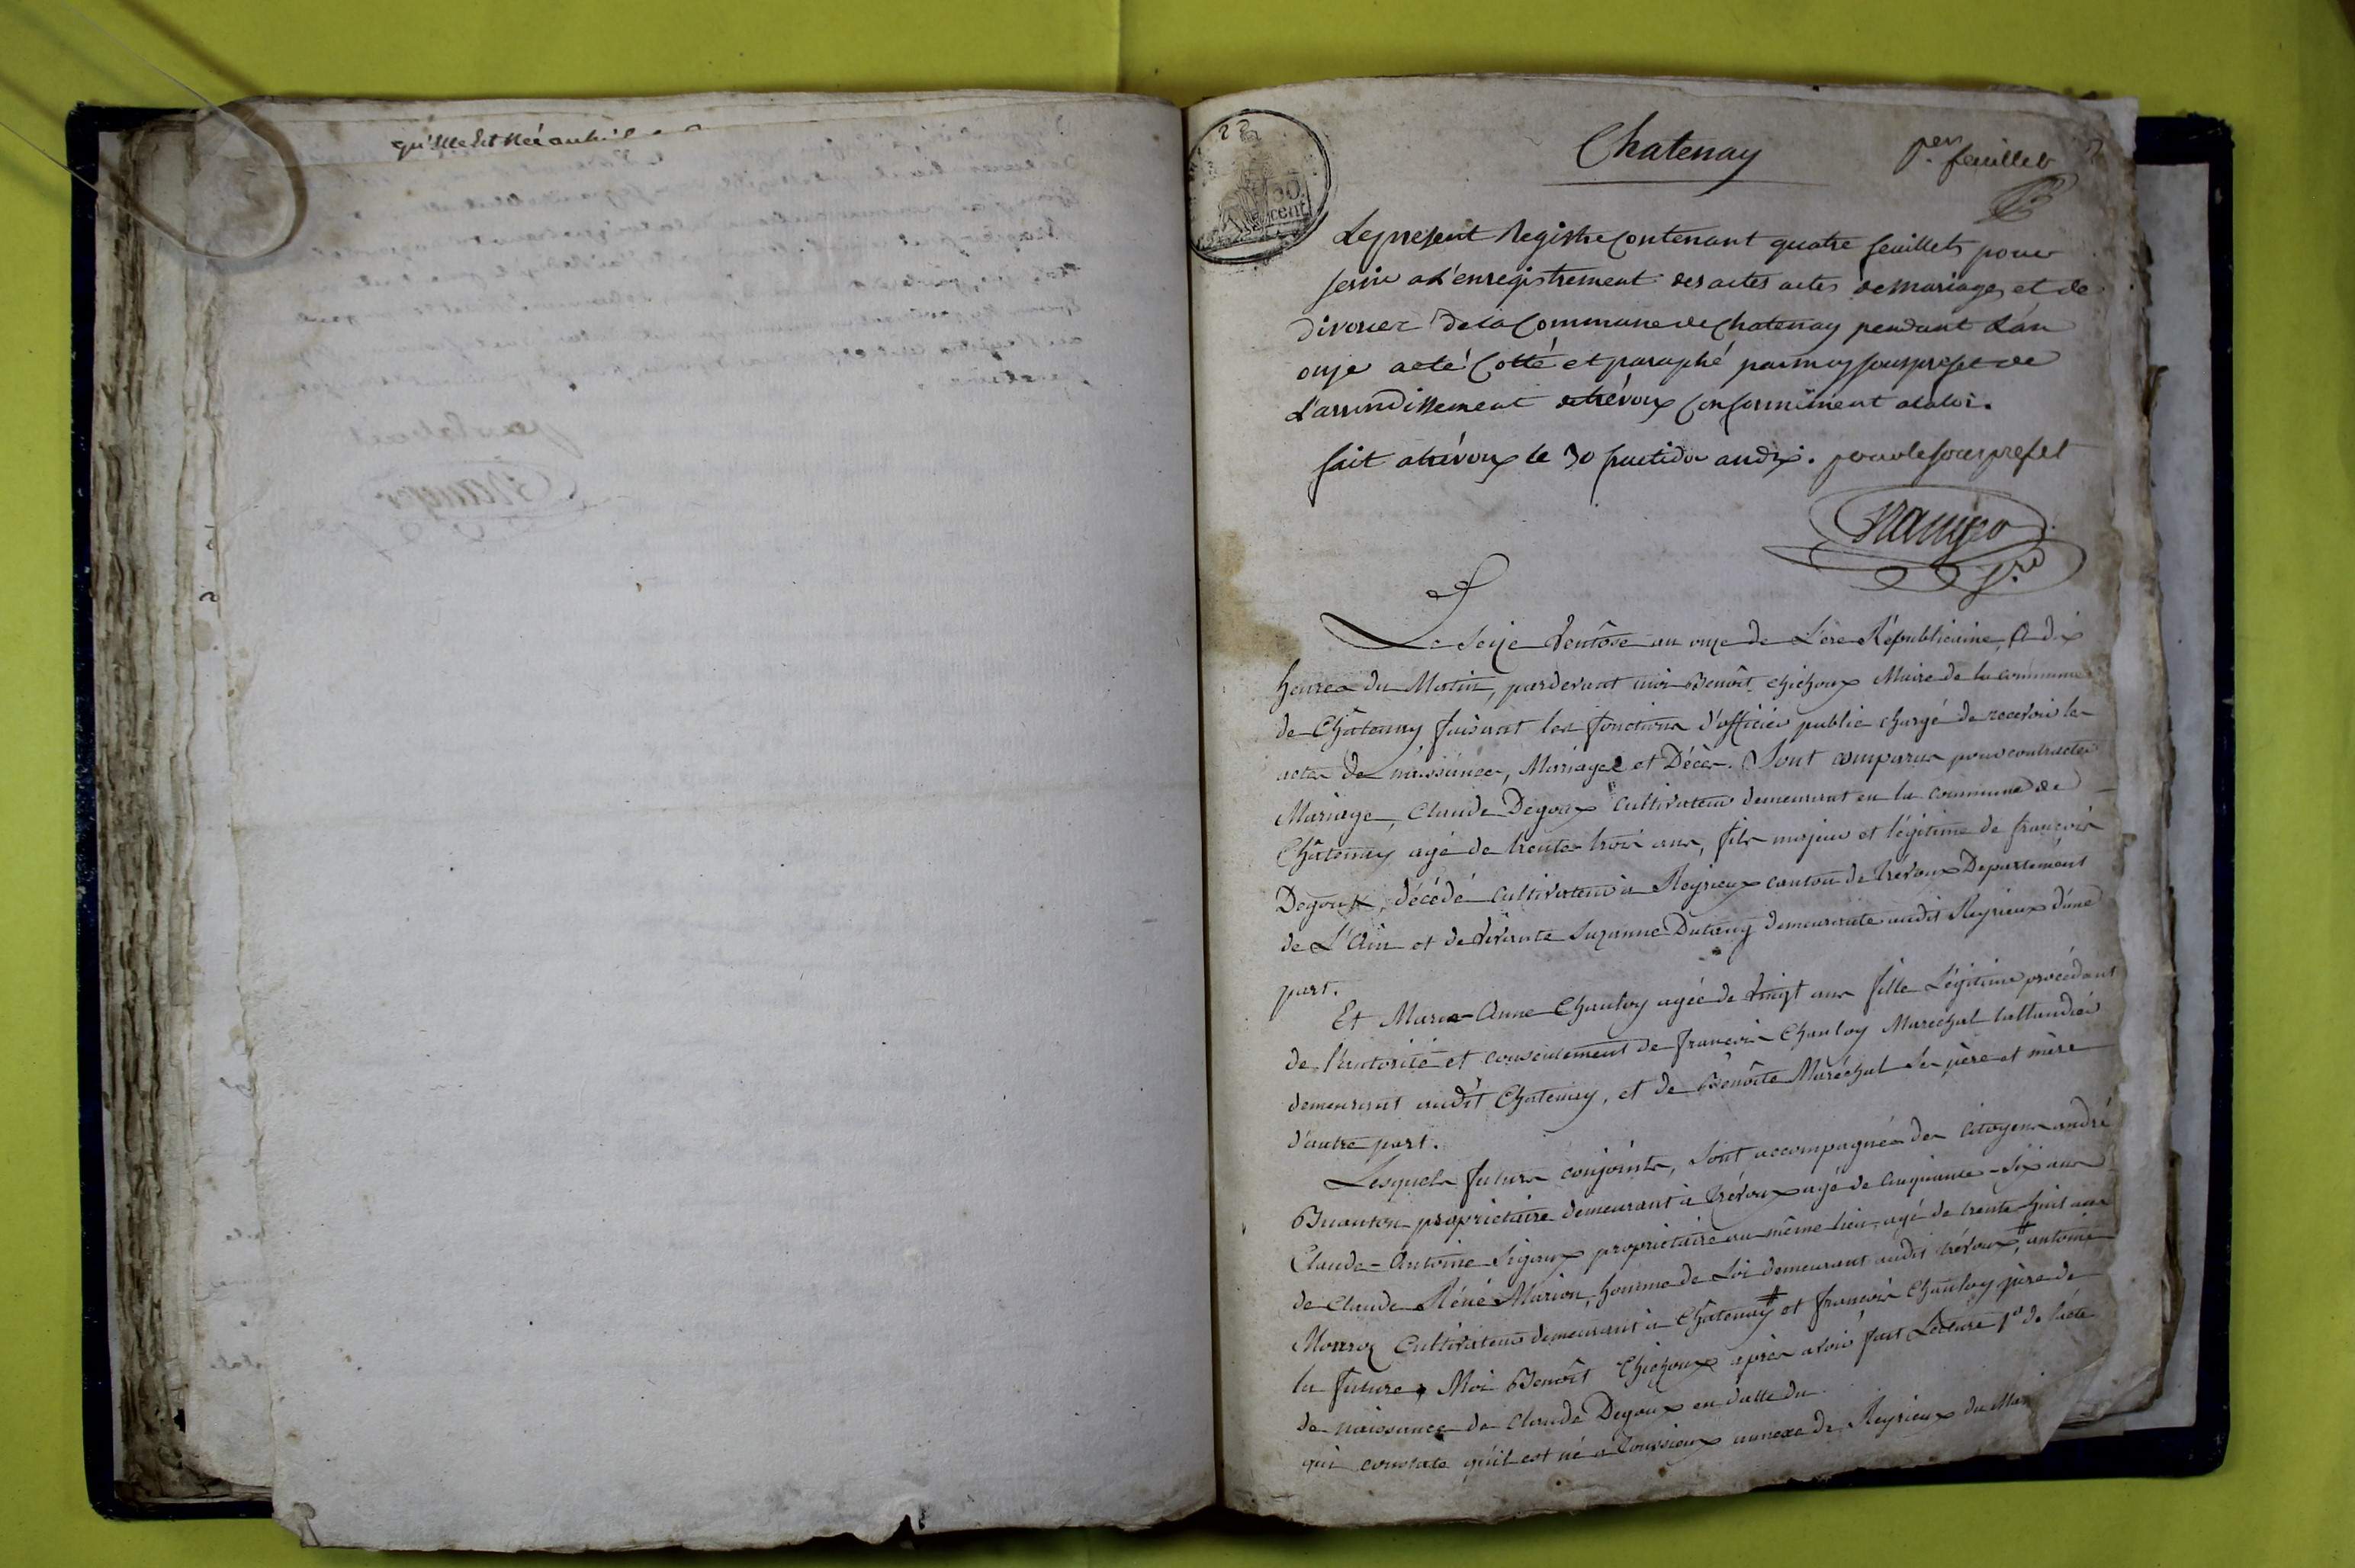 qu'elle est née
Chatenay
per feuillet
30
cent
Le present Registre Contenant quatre feuillets pour
servir a L'enregistrement des actes actes de mariages et de
divorce de la Commune de Chatenay pendant L'an
onze a eté Cotté et paraphé par moy sous prefet de
L'arrondissement de trévoux Conformément a la loi.
fait a trévoux le 30 fructidor an dix. pour le sous prefet
Le Seize Ventôse an onze de L'ère Républicaine, a dix
heures du Matin, pardevant moi Benoît Chichoux Maire de la commune
de Châtenay faisant les fonctions d'officier public chargé de recevoir les
actes de naissance, Mariage et Décès. Sont comparus pour contracter
Mariage, Claude Degoux Cultivateur demeurant en la commune de
Châtenay agé de trente-trois ans, fils majeur et légitime de françois
Degoux, décédé cultivateur à Reyrieux canton de Trévoux Departement
de L'Ain et de vivante Suzanne Dutang demeurante audit Reyrieux d'une
part.
Et Marie-Anne Chanloy agée de vingt ans fille Légitime procédant
de l'autorité et consentement de françois Chanloy Maréchal tallandier
demeurant audit Chatenay, et de Benoîte Maréchal ses père et mère
d'autre part.
Lesquels futurs conjoints, sont accompagnés des citoyens andré
Buanton proprietaire demeurant à Trévoux agé de cinquante-six ans
Claude-Antoine Sigoux propriétaire au même lieu, agé de trente-huit ans
de Claude Réné Marion, homme de Loi demeurant audit trévoux, antoine
Monroz Cultivateur demeurant à Châtenay et françois Chanloy père de
la future, Moi Benoît Chichoux après avoir fait Lecture 1° de l'acte
de naissance de Claude Degoux en datte du
qui constate qu'il est né a Toussieux annexe de Reyrieux du